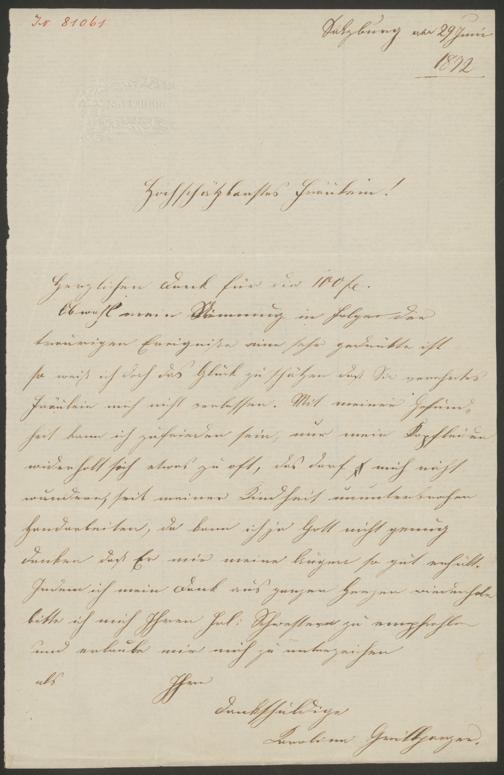 IN 81061
Salzburg am 29 Juni
1872
Hochschätzbarstes Fräulein!
Herzlichen Dank für die 100 fl.
Obwohl meine Stimmung in Folge der
traurigen Ereigniße eine sehr gedrükte ist
so weiß ich doch das Glück zu schätzen daß Sie verehrtes
Fräulein mich nicht verlassen. Mit meiner Gesund-
heit kann ich zufrieden sein, nur mein Kopfleiden
widerholt sich etwas zu oft, das darf mich nicht
wundern, seit meiner Kindheit ununterbrochen
Handarbeiten, da kann ich ja Gott nicht genug
danken daß Er mir meine Augen so gut erhält.
Indem ich mein Dank aus ganzen Herzen wiederhole
bitte ich mich Ihren Frl: Schwestern zu empfehlen
und erlaube mir mich zu unterzeichen
als Ihre
dankschuldige
Karolina Grillparzer.